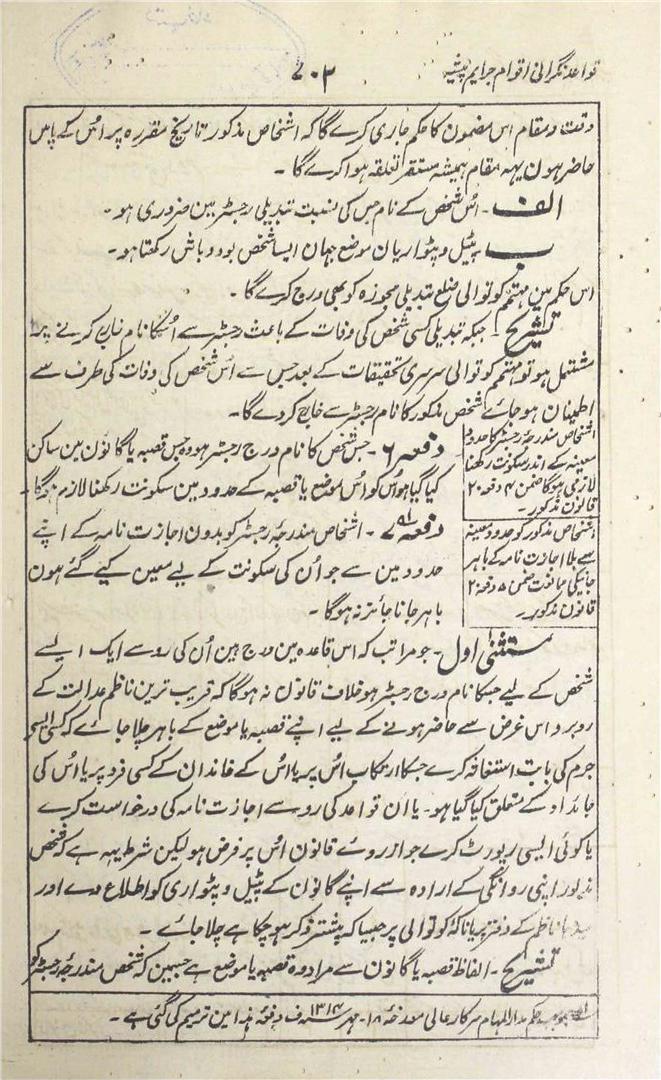 قواعد نگرانی اقوام جرایم پیشہ
۷۰۲
وقت و مقام اس مضمون کا حکم جاری کرے گا کہ اشخاص مذکور تاریخ مقررہ پر اُس کے پاس
حاضر ہون یہہ مقام ہمیشہ مستقر تعلقہ ہوا کرے گا ۔
الف ۔ اُس شخص کے نام جس کی نسبت تبدیلی رجسٹر مین ضروری ہو ۔
ب ۔ پٹیل و پٹواریان موضع جہان ایسا شخص بود و باش رکھتا ہو ۔
اس حکم مین مہتمم کوتوالی ضلع تبدیلی مجوزہ کو بھی درج کرے گا ۔
تشریح ۔ جبکہ تبدیلی کسی شخص کی وفات کے باعث رجسٹر سے اُسکا نام خارج کرنے پر
مشتمل ہو تو مہتمم کوتوالی سرسری تحقیقات کے بعد جس سے اُس شخص کی وفات کی طرف سے
اطمینان ہو جائے شخص مذکور کا نام رجسٹر سے خارج کر دے گا ۔
اشخاص مندرجہ رجسٹر کا حدود
معینہ کے اندر سکونت رکھنا
لازمی ہوگا ضمن ۴ دفعہ ۲۰
قانون مذکور ۔
دفعہ ۶ ۔ جس شخص کا نام درج رجسٹر ہو وہ جس قصبہ یا گانون مین ساکن
کیا گیا ہو اُس کو اُس موضع یا قصبہ کے حدود مین سکونت رکھنا لازم ہوگا ۔
اشخاص مذکور کو حدود معینہ
سے بلا اجازت نامہ کے باہر
جانیکی ممانعت ضمن ۵ دفعہ ۲۰
قانون مذکور ۔
دفعہ ۷ ۔ اشخاص مندرجہ رجسٹر کو بدون اجازت نامہ کے اپنے
حدود مین سے جو اُن کی سکونت کے لیے معین کیے گئے ہون
باہر جانا جائز نہ ہوگا ۔
مستثنٰی اول ۔ جو مراتب کہ اس قاعدہ مین درج ہین اُن کی رو سے ایک ایسے
شخص کے لیے جسکا نام درج رجسٹر ہو خلاف قانون نہ ہوگا کہ قریب ترین ناظم عدالت کے
روبرو اس غرض سے حاضر ہونے کے لیے اپنے قصبہ یا موضع کے باہر چلا جائے کہ کسی ایسی
جرم کی بابت استغاثہ کرے جسکا ارتکاب اُس پر یا اُس کے خاندان کے کسی فرد پر یا اُس کی
جائداد کے متعلق کیا گیا ہو ۔ یا ان قواعد کی رو سے اجازت نامہ کی درخواست کرے
یا کوئی ایسی رپورٹ کرے جو ازروئے قانون اُس پر فرض ہو لیکن شرط یہہ ہے کہ شخص
مذکور اپنی روانگی کے ارادہ سے اپنے گانون کے پٹیل و پٹواری کو اطلاع دے اور
سیدھا ناظم کے دفتر پر یا ناکہ کوتوالی پر جیسا کہ پیشتر ذکر ہو چکا ہے چلا جائے ۔
تشریح ۔ الفاظ قصبہ یا گانون سے مراد وہ قصبہ یا موضع ہے جسمین کہ شخص مندرجہ رجسٹر کو
بموجب حکم مدارالمہام سرکار عالی مورخہ ۱۸ ۔ مہر ۱۳۱۴ف دفعہ ہذا مین ترمیم کی گئی ہے ۔